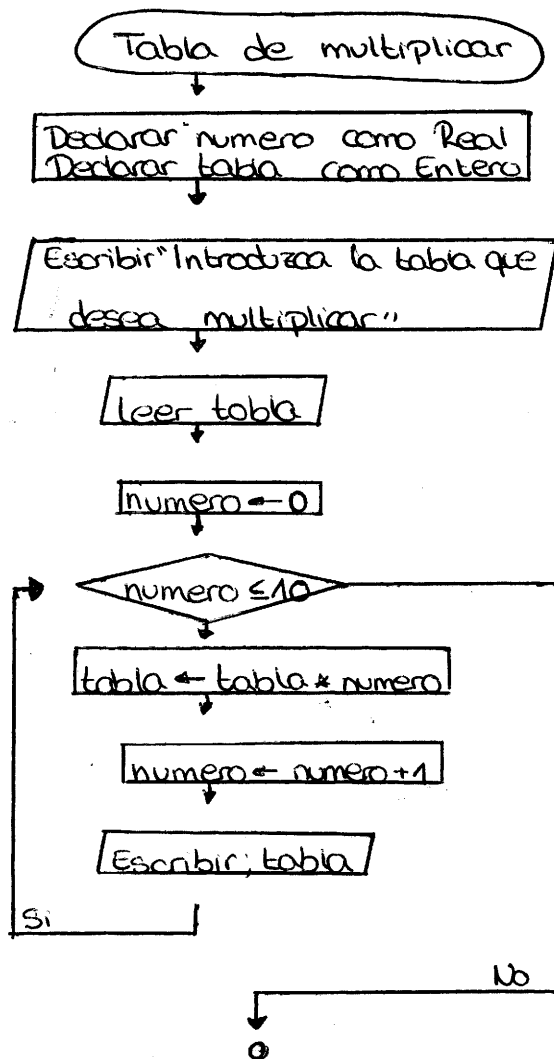 Tabla de multiplicar
Declarar numero como Real
Declarar tabla como Entero
Escribir "Introduzca la tabla que
desea multiplicar"
leer tabla
numero ← 0
numero ≤ 10
tabla ← tabla * numero
numero ← numero + 1
Escribir; tabla
Si
No